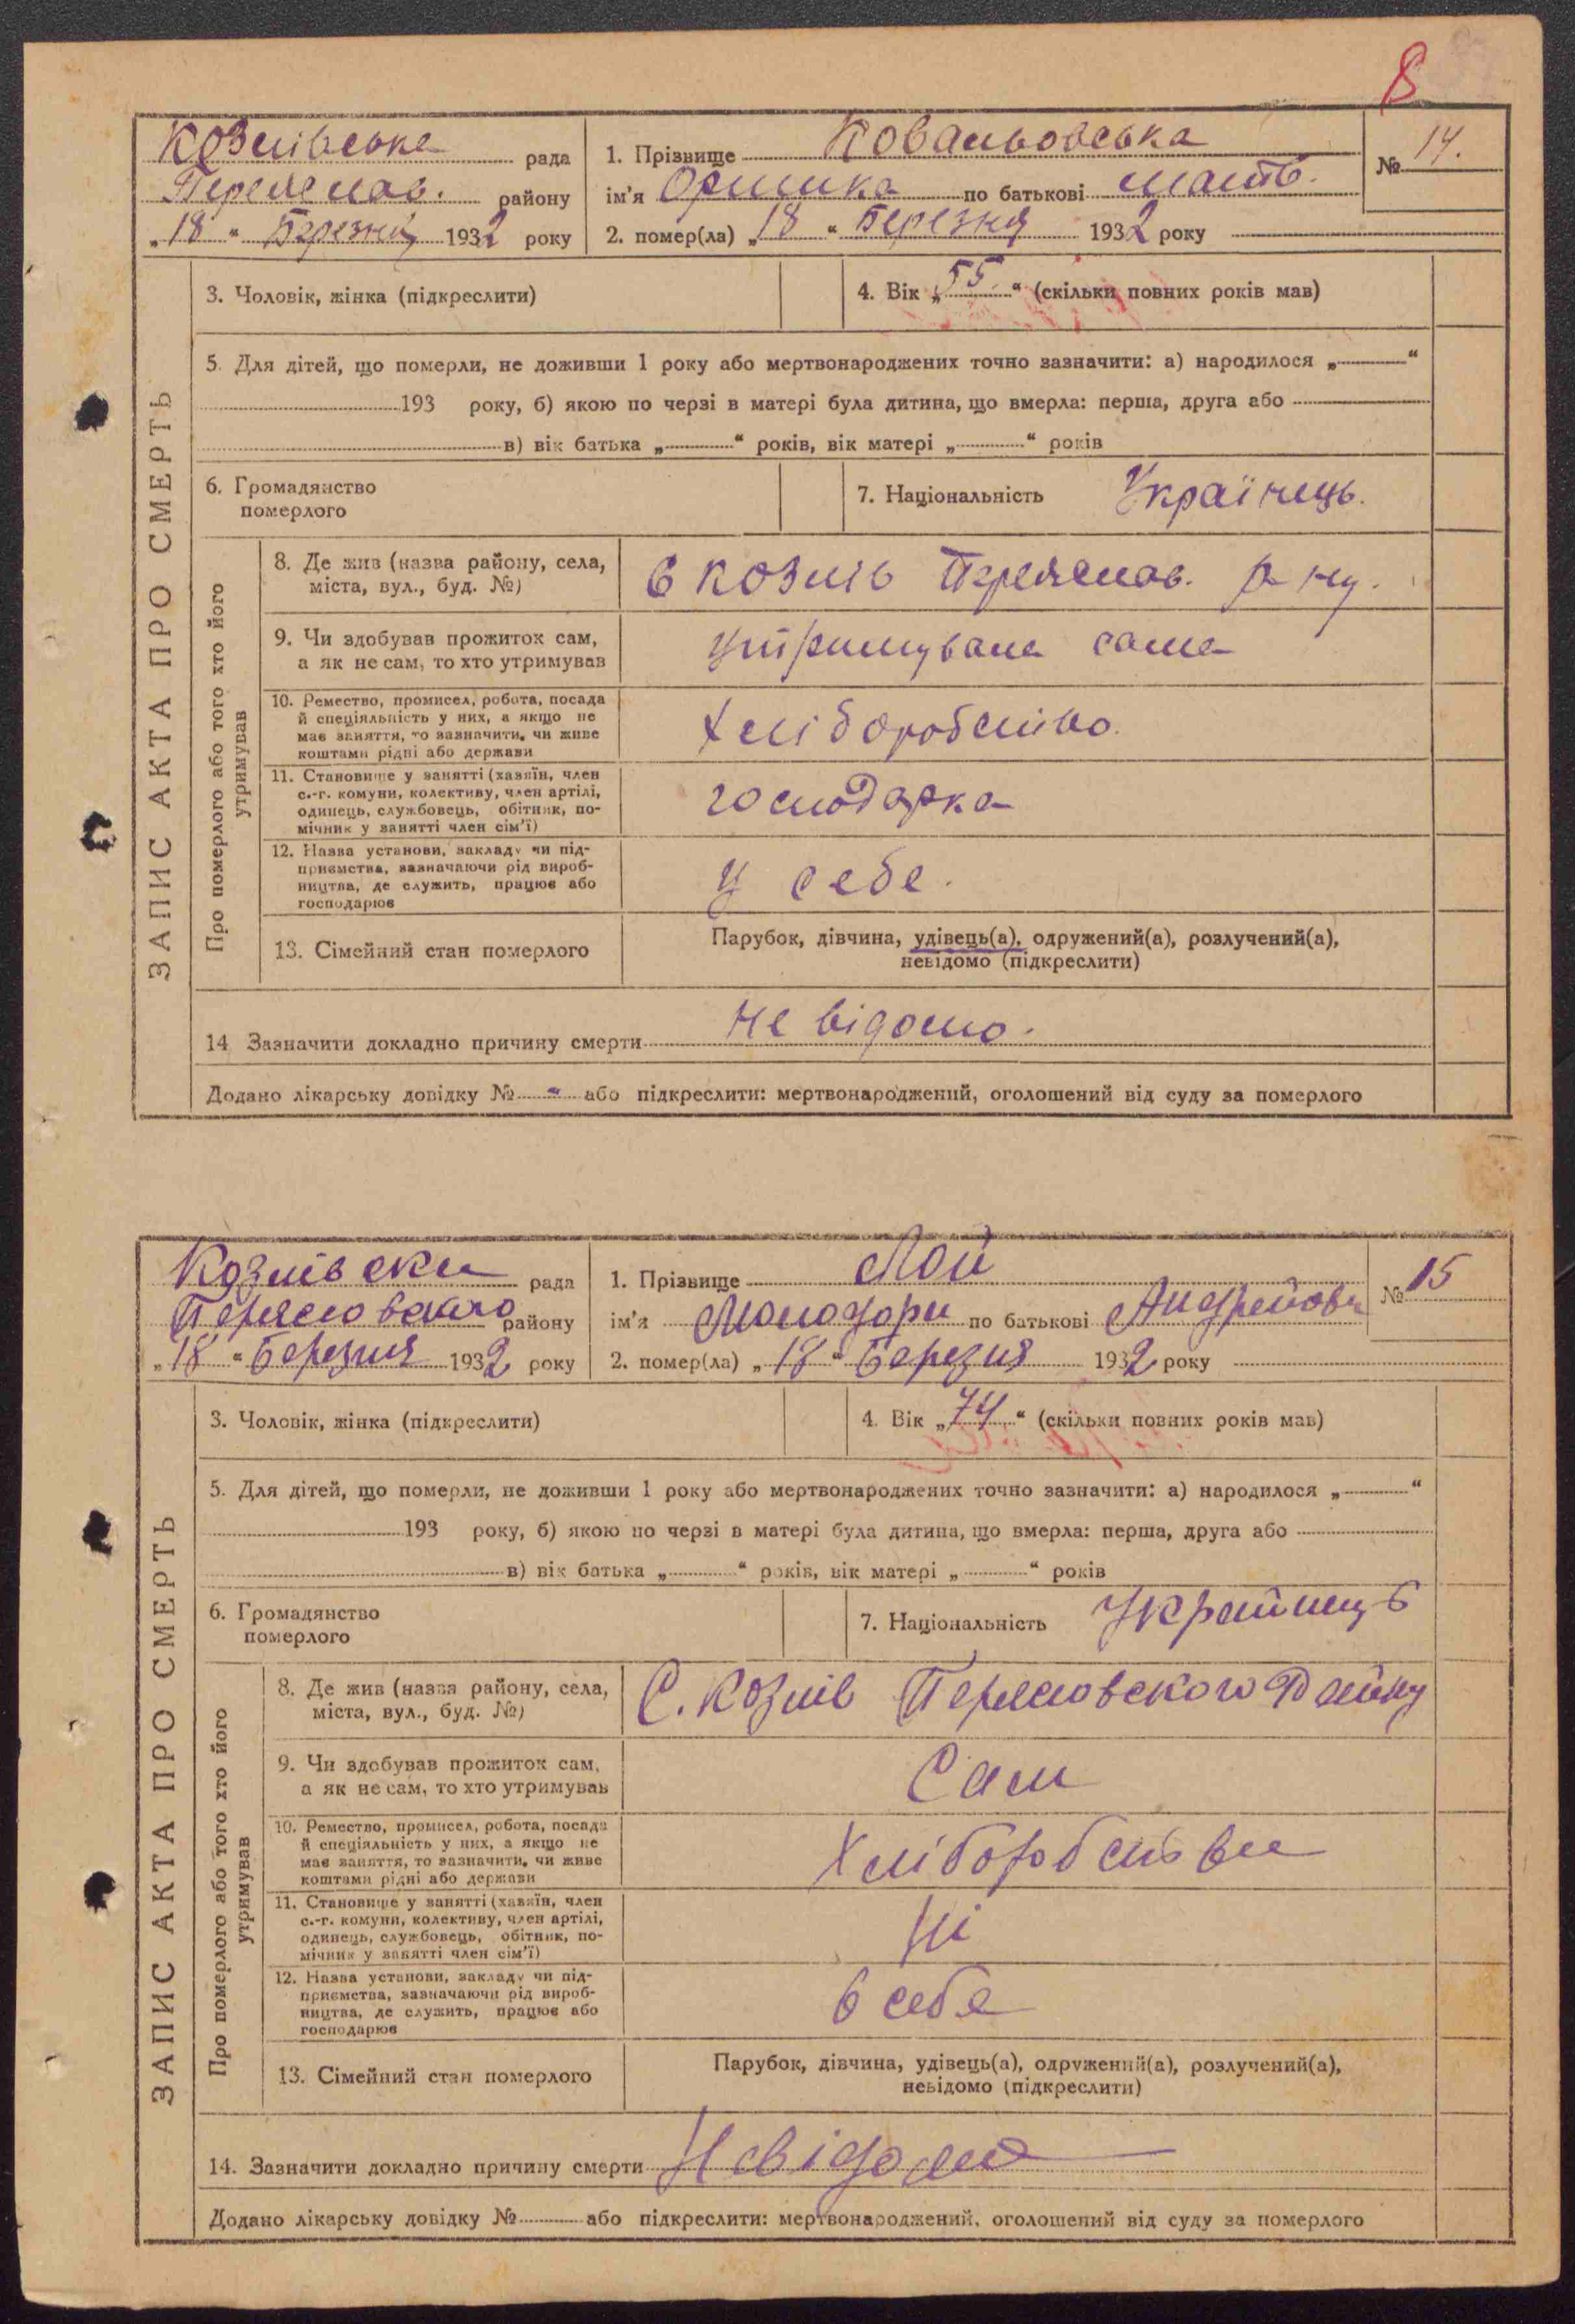 8
Козлівська рада
Переяслав. району
„18“ Березня 1932 року
1. Прізвище Ковальовська
ім'я Оришка по батькові Матв.
№ 14.
2. помер(ла) „18“ Березня 1932 року
ЗАПИС АКТА ПРО СМЕРТЬ
3. Чоловік, жінка (підкреслити)
4. Вік „55“ (скільки повних років мав)
5. Для дітей, що померли, не доживши 1 року або мертвонароджених точно зазначити: а) народилося „ “
193 року, б) якою по черзі в матері була дитина, що вмерла: перша, друга або
в) вік батька „ “ років, вік матері „ “ років
6. Громадянство
померлого
7. Національність Українець.
Про померлого або того хто його
утримував
8. Де жив (назва району, села,
міста, вул., буд. №)
с Козлів Переяслав. р-ну.
9. Чи здобував прожиток сам,
а як не сам, то хто утримував
утримувала сама
10. Ремество, промисел, робота, посада
й спеціяльність у них, а якщо не
має заняття, то зазначити, чи живе
коштами рідні або держави
Хліборобство.
11. Становище у занятті (хазяїн, член
с.-г. комуни, колективу, член артілі,
одинець, службовець, обітник, по-
мічник у занятті член сім'ї)
господарка
12. Назва установи, закладу чи під-
приємства, зазначаючи рід вироб-
ництва, де служить, працює або
господарює
у себе.
13. Сімейний стан померлого
Парубок, дівчина, удівець(а), одружений(а), розлучений(а),
невідомо (підкреслити)
14 Зазначити докладно причину смерти не відомо.
Додано лікарську довідку № - або підкреслити: мертвонароджений, оголошений від суду за померлого
Козлівска рада
Переясловского району
„18“ Березня 1932 року
1. Прізвище Лой
ім'я по батькові Андрейовч
№ 15
2. помер(ла) „18“ Березня 1932 року
ЗАПИС АКТА ПРО СМЕРТЬ
3. Чоловік, жінка (підкреслити)
4. Вік „74“ (скільки повних років мав)
5. Для дітей, що померли, не доживши 1 року або мертвонароджених точно зазначити: а) народилося „ “
193 року, б) якою по черзі в матері була дитина, що вмерла: перша, друга або
в) вік батька „ “ років, вік матері „ “ років
6. Громадянство
померлого
7. Національність Украйинець
Про померлого або того хто його
утримував
8. Де жив (назва району, села,
міста, вул., буд. №)
С. Козлів Переясловского Району
9. Чи здобував прожиток сам,
а як не сам, то хто утримував
Сам
10. Ремество, промисел, робота, посада
й спеціяльність у них, а якщо не
має заняття, то зазначити, чи живе
коштами рідні або держави
Хліборобства
11. Становище у занятті (хазяїн, член
с.-г. комуни, колективу, член артілі,
одинець, службовець, обітник, по-
мічник у занятті член сім'ї)
Ні
12. Назва установи, закладу чи під-
приємства, зазначаючи рід вироб-
ництва, де служить, працює або
господарює
в себе
13. Сімейний стан померлого
Парубок, дівчина, удівець(а), одружений(а), розлучений(а),
невідомо (підкреслити)
14. Зазначити докладно причину смерти Невідомо
Додано лікарську довідку № або підкреслити: мертвонароджений, оголошений від суду за померлого